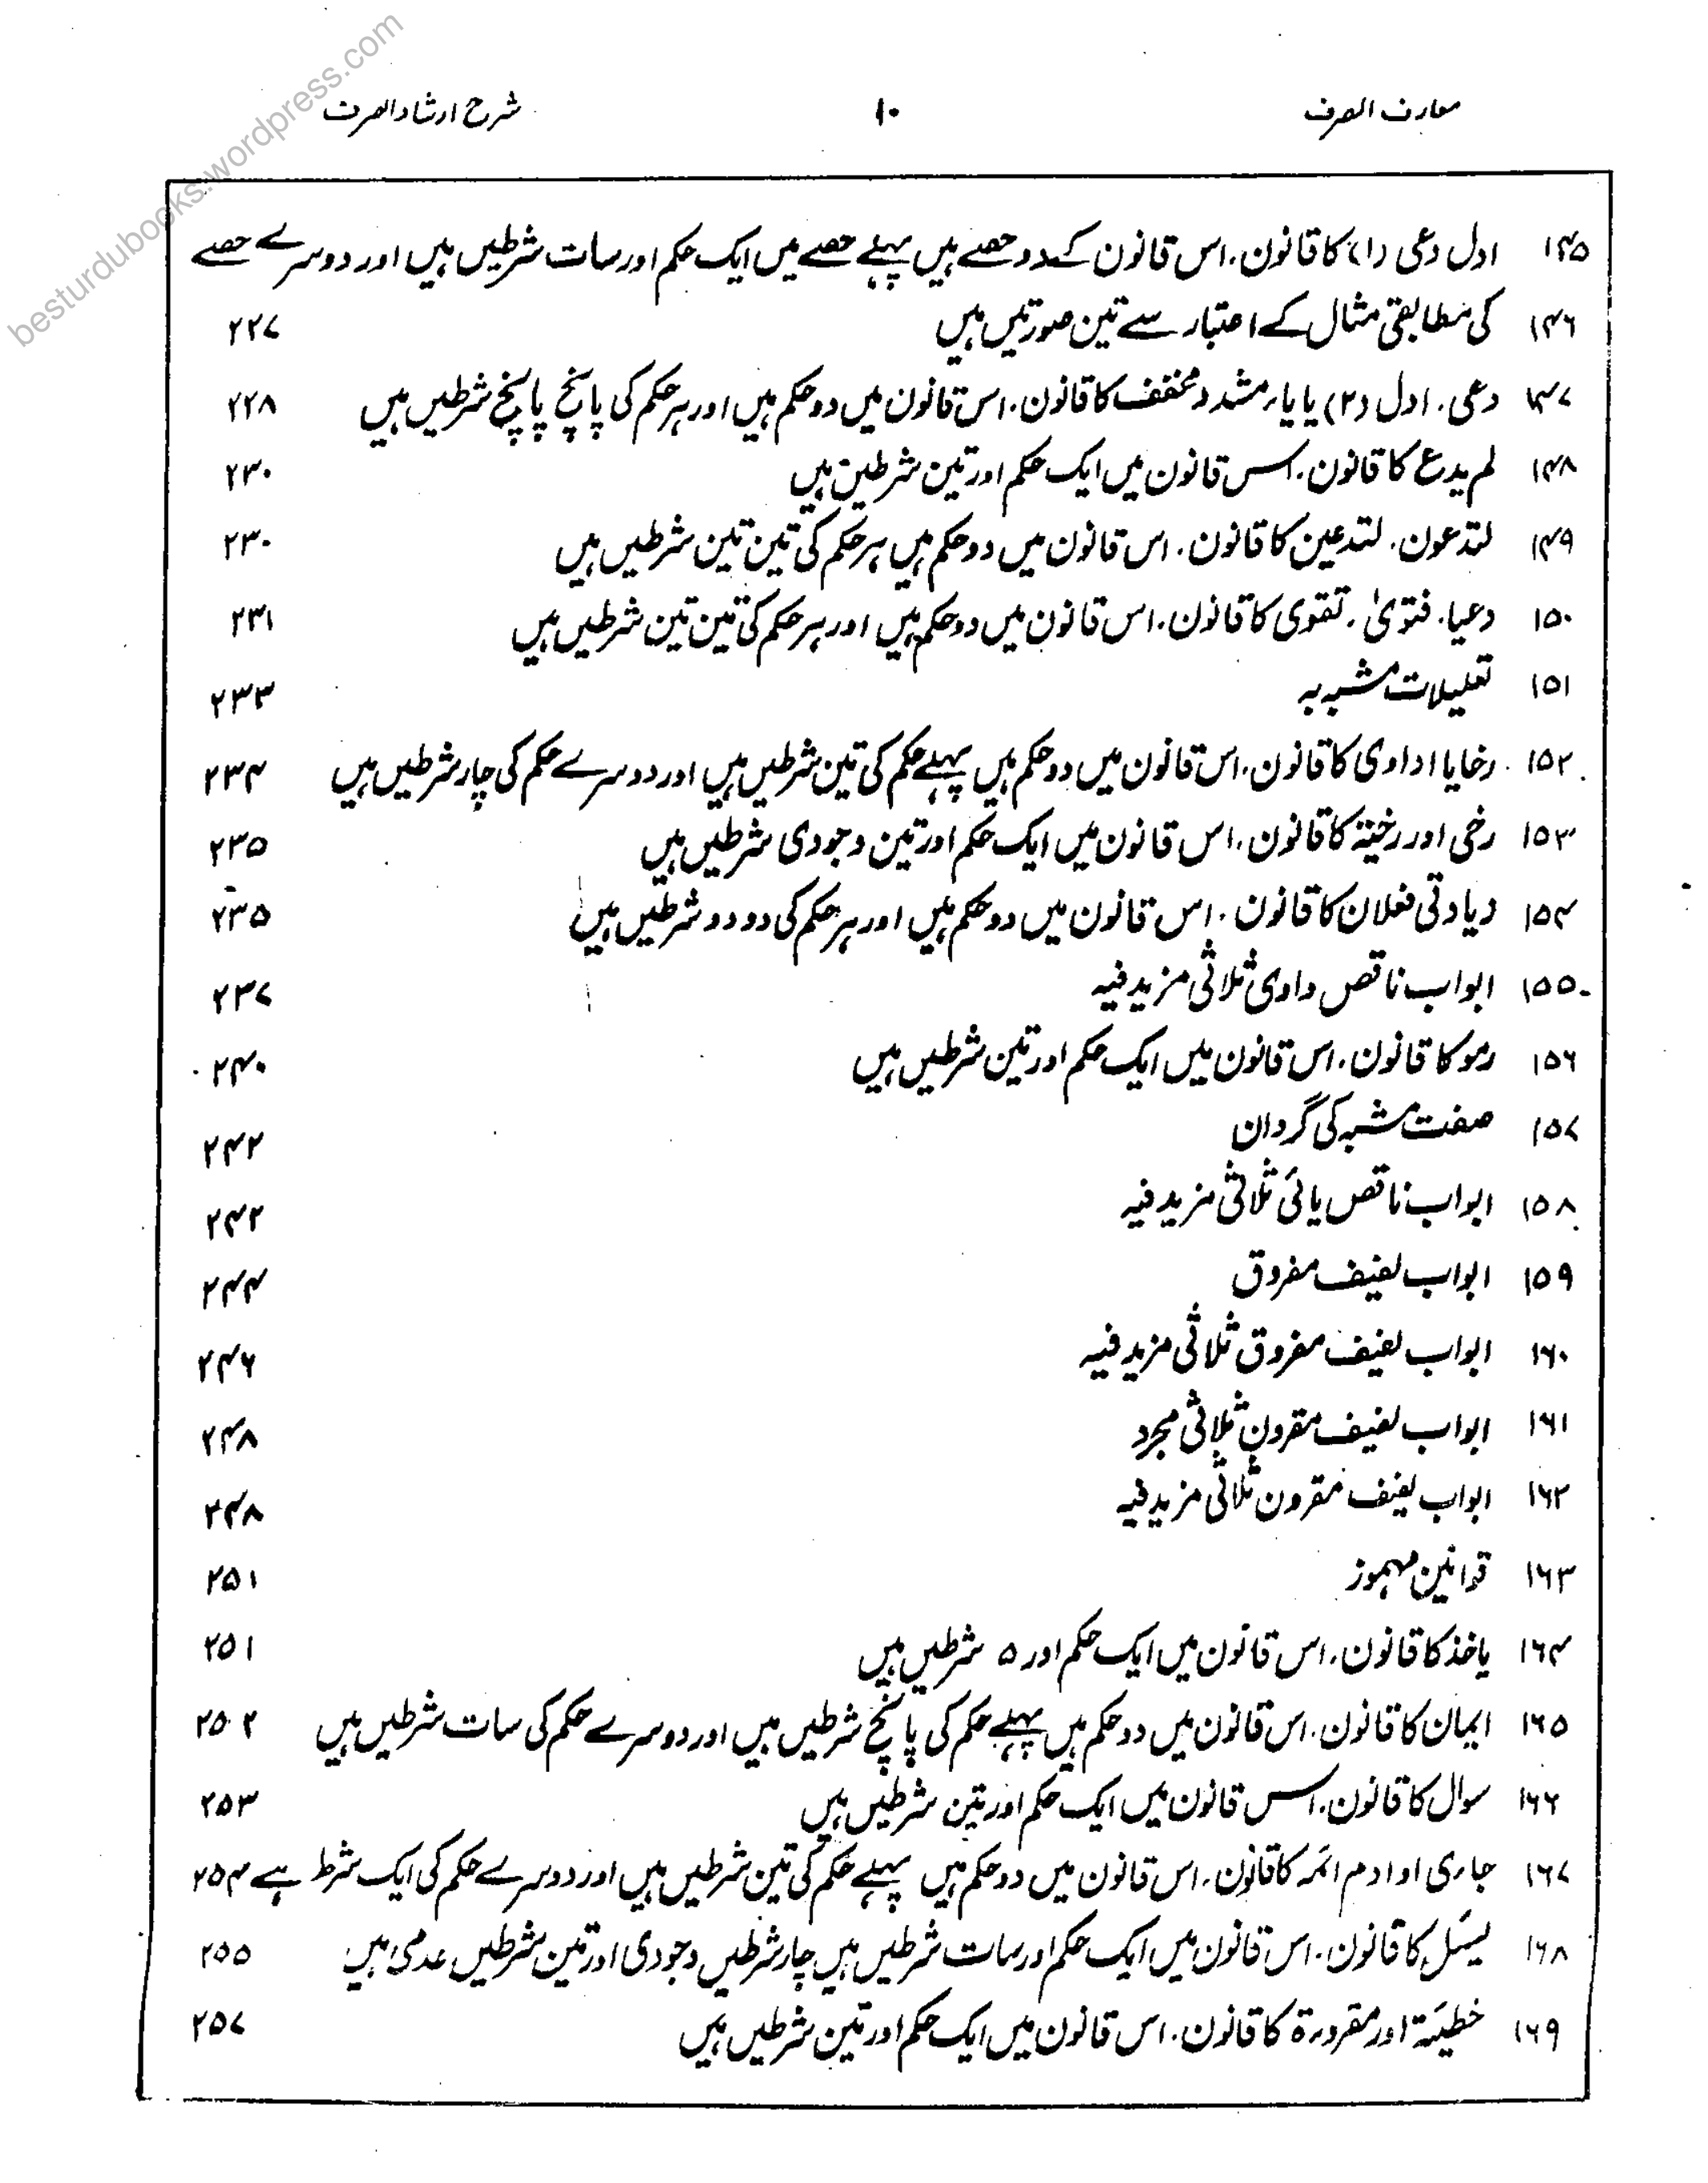 معارف الصرف ۱۰ شرح ارشاد الصرف
۱۴۵ ادل دعی (۱) کا قانون. اس قانون کے دو حصے ہیں پہلے حصے میں ایک حکم اور سات شرطیں ہیں اور دوسرے حصے
۱۴۶ کی مطابقی مثال کے اعتبار سے تین صورتیں ہیں ۲۲۷
۱۴۷ دعی. ادل (۲) یا یاء مشدد مخفف کا قانون. اس قانون میں دو حکم ہیں اور ہر حکم کی پانچ پانچ شرطیں ہیں ۲۲۸
۱۴۸ لم یدع کا قانون. اس قانون میں ایک حکم اور تین شرطیں ہیں ۲۳۰
۱۴۹ لتدعون. لتدعین کا قانون. اس قانون میں دو حکم ہیں ہر حکم کی تین تین شرطیں ہیں ۲۳۰
۱۵۰ دعیا. فتویٰ. تقوی کا قانون. اس قانون میں دو حکم ہیں اور ہر حکم کی تین تین شرطیں ہیں ۲۳۱
۱۵۱ تعلیلات مشبہ بہ ۲۳۳
۱۵۲ رخایا اداوی کا قانون. اس قانون میں دو حکم ہیں پہلے حکم کی تین شرطیں ہیں اور دوسرے حکم کی چار شرطیں ہیں ۲۳۴
۱۵۳ رخی اور رخیتہ کا قانون. اس قانون میں ایک حکم اور تین وجودی شرطیں ہیں ۲۳۵
۱۵۴ دیادتی فعلان کا قانون. اس قانون میں دو حکم ہیں اور ہر حکم کی دو دو شرطیں ہیں ۲۳۵
۱۵۵ ابواب ناقص واوی ثلاثی مزید فیہ ۲۳۷
۱۵۶ رمو کا قانون. اس قانون میں ایک حکم اور تین شرطیں ہیں ۲۴۰
۱۵۷ صفت مشبہ کی گردان ۲۴۲
۱۵۸ ابواب ناقص یائی ثلاثی مزید فیہ ۲۴۲
۱۵۹ ابواب لفیف مفروق ۲۴۴
۱۶۰ ابواب لفیف مفروق ثلاثی مزید فیہ ۲۴۶
۱۶۱ ابواب لفیف مقرون ثلاثی مجرد ۲۴۸
۱۶۲ ابواب لفیف مقرون ثلاثی مزید فیہ ۲۴۸
۱۶۳ قوانین مہموز ۲۵۱
۱۶۴ یاخذ کا قانون. اس قانون میں ایک حکم اور ۵ شرطیں ہیں ۲۵۱
۱۶۵ ایمان کا قانون. اس قانون میں دو حکم ہیں پہلے حکم کی پانچ شرطیں ہیں اور دوسرے حکم کی سات شرطیں ہیں ۲۵۲
۱۶۶ سوال کا قانون. اس قانون میں ایک حکم اور تین شرطیں ہیں ۲۵۳
۱۶۷ جاری او ادم ائمہ کا قانون. اس قانون میں دو حکم ہیں پہلے حکم کی تین شرطیں ہیں اور دوسرے حکم کی ایک شرط ہے ۲۵۴
۱۶۸ یسئل کا قانون. اس قانون میں ایک حکم اور سات شرطیں ہیں چار شرطیں وجودی اور تین شرطیں عدمی ہیں ۲۵۵
۱۶۹ خطیئة اور مقرورة کا قانون. اس قانون میں ایک حکم اور تین شرطیں ہیں ۲۵۷
besturdubooks.wordpress.com